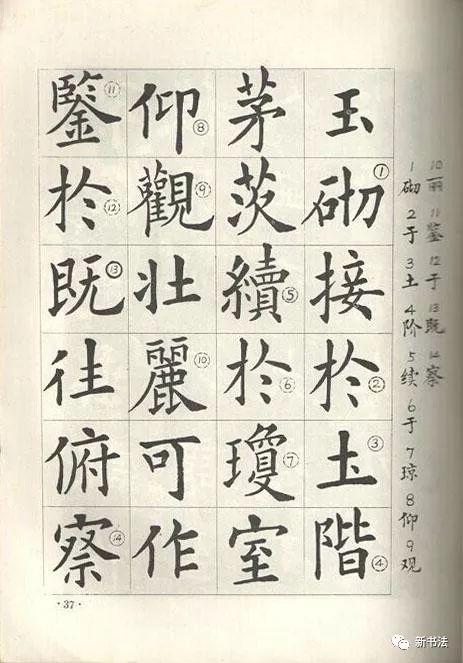 玉砌①接於②土③階④
茅茨續⑤於⑥瓊⑦室
仰⑧觀⑨壮麗⑩可作
鑒⑪於⑫既⑬往俯察⑭
1砌2于3土4阶5续6于7琼8仰9观
10丽11鉴12于13既14察
·37·
新书法